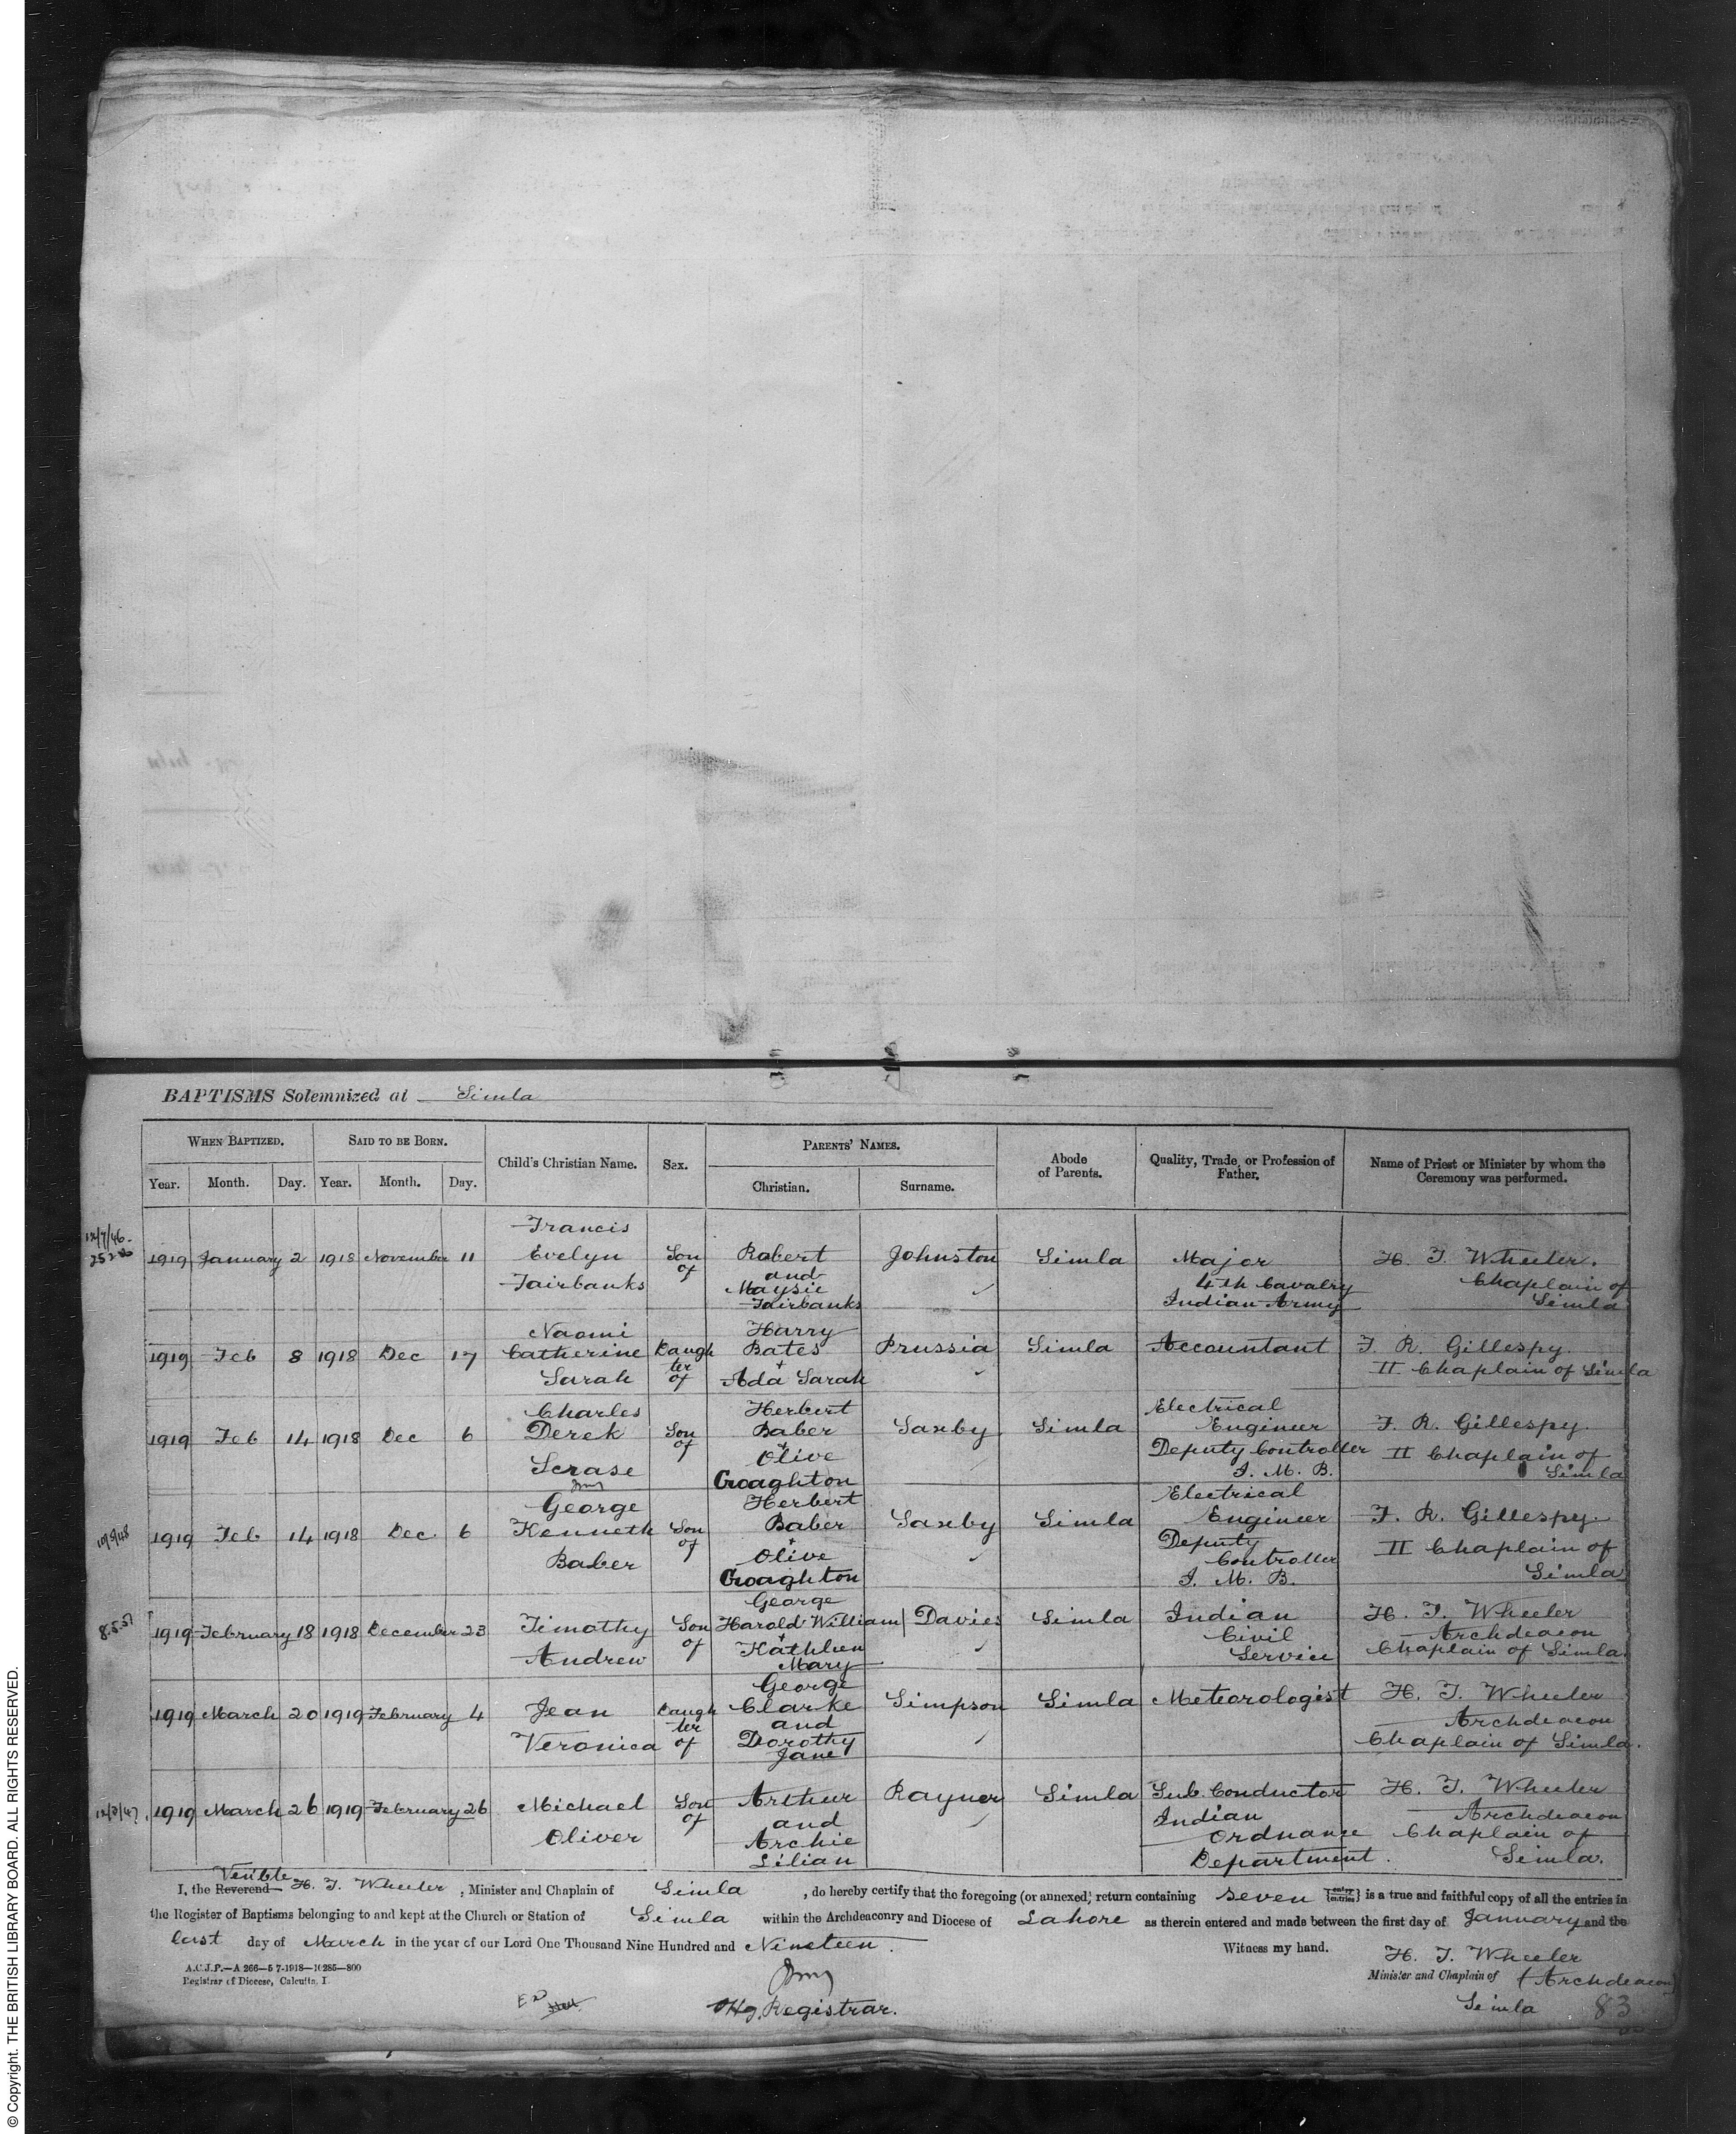 BAPTISMS Solemnized at Simla
WHEN BAPTIZED. SAID TO BE BORN. Child's Christian Name. Sex. PARENTS' NAMES. Abode of Parents. Quality, Trade, or Profession of Father. Name of Priest or Minister by whom the Ceremony was performed.
Year. Month. Day. Year. Month. Day. Christian. Surname.
12/7/46
1919 January 2 1918 November 11 Francis Evelyn Fairbanks Son of Robert and Maysie Fairbanks Johnston Simla Major 4th Cavalry Indian Army H. T. Wheeler. Chaplain of Simla
1919 Feb 8 1918 Dec 17 Naomi Catherine Sarah Daughter of Harry Bates + Ada Sarah Prussia Simla Accountant F. R. Gillespy. II Chaplain of Simla
1919 Feb 14 1918 Dec 6 Charles Derek Scrase Son of Herbert Baber + Olive Croaghton Saxby Simla Electrical Engineer Deputy Controller I. M. B. F. R. Gillespy. II Chaplain of Simla
1919 Feb 14 1918 Dec. 6 George Kenneth Baber Son of Herbert Baber + Olive Croaghton Saxby Simla Electrical Engineer Deputy Controller I. M. B. F. R. Gillespy. II Chaplain of Simla
8.5.51
1919 February 18 1918 December 23 Timothy Andrew Son of George Harold William + Kathleen Mary Davies Simla Indian Civil Service H. T. Wheeler Archdeacon Chaplain of Simla
1919 March 20 1919 February 4 Jean Veronica Daughter of George Clarke and Dorothy Jane Simpson Simla Meteorologist H. T. Wheeler Archdeacon Chaplain of Simla.
1919 March 26 1919 February 26 Michael Oliver Son of Arthur and Archie Lilian Rayner Simla Sub. Conductor Indian Ordnance Department. H. T. Wheeler Archdeacon Chaplain of Simla.
Venble
I, the Reverend H. T. Wheeler, Minister and Chaplain of Simla, do hereby certify that the foregoing (or annexed) return containing seven {entry entries} is a true and faithful copy of all the entries in
the Register of Baptisms belonging to and kept at the Church or Station of Simla within the Archdeaconry and Diocese of Lahore as therein entered and made between the first day of January and the
last day of March in the year of our Lord One Thousand Nine Hundred and Nineteen.
Witness my hand.
H. T. Wheeler
A.C.J.P.—A 266—5-7-1918—10285—800
Registrar of Diocese, Calcutta, I.
Minister and Chaplain of (Archdeacon)
Simla
Offg. Registrar.
83
© Copyright. THE BRITISH LIBRARY BOARD. ALL RIGHTS RESERVED.